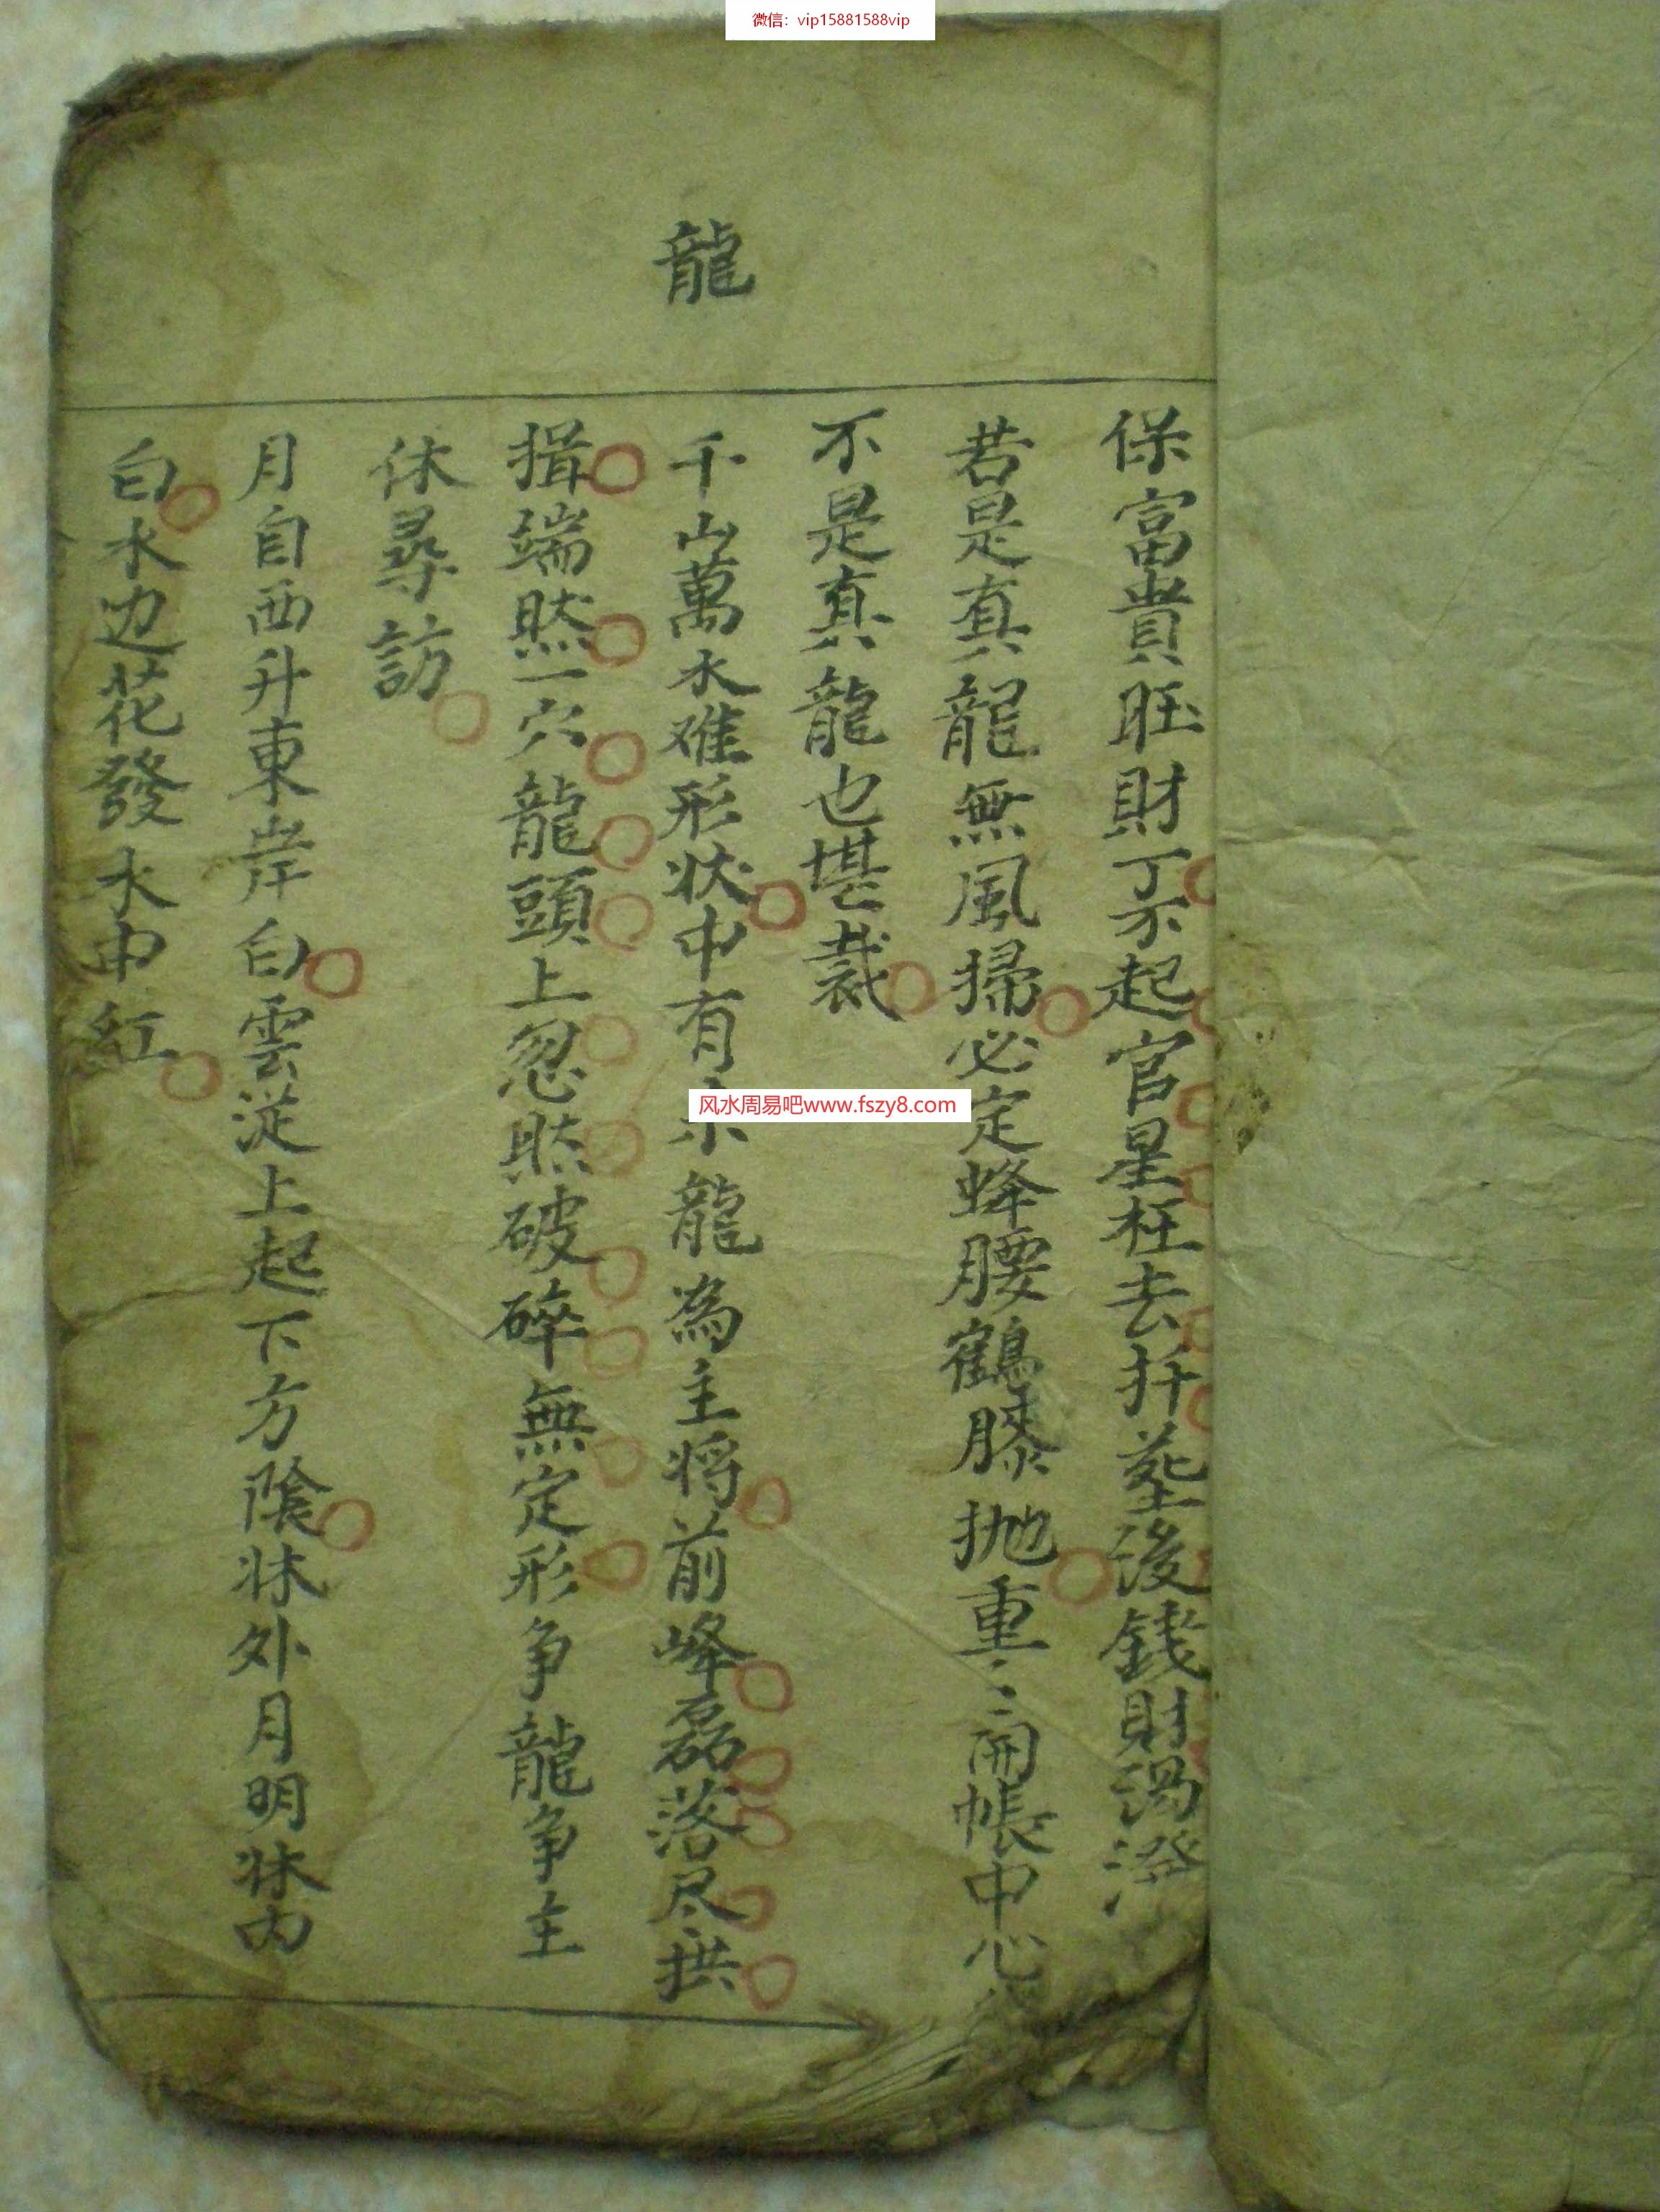 微信：vip15881588vip
龍
保富貴旺財丁不起官星枉去扦塟後錢財潙潑
若是真龍無風掃必定蜂腰鶴膝抛重〻開帳中心
不是真龍也堪裁
千山萬水难形状中有小龍為主将前峰磊落尽拱
揖端然一穴龍頭上忽然破碎無定形争龍争主
休尋訪
月自西升東岸白雲従上起下方陰牀外月明牀内
白水边花發水中紅
风水周易吧www.fszy8.com